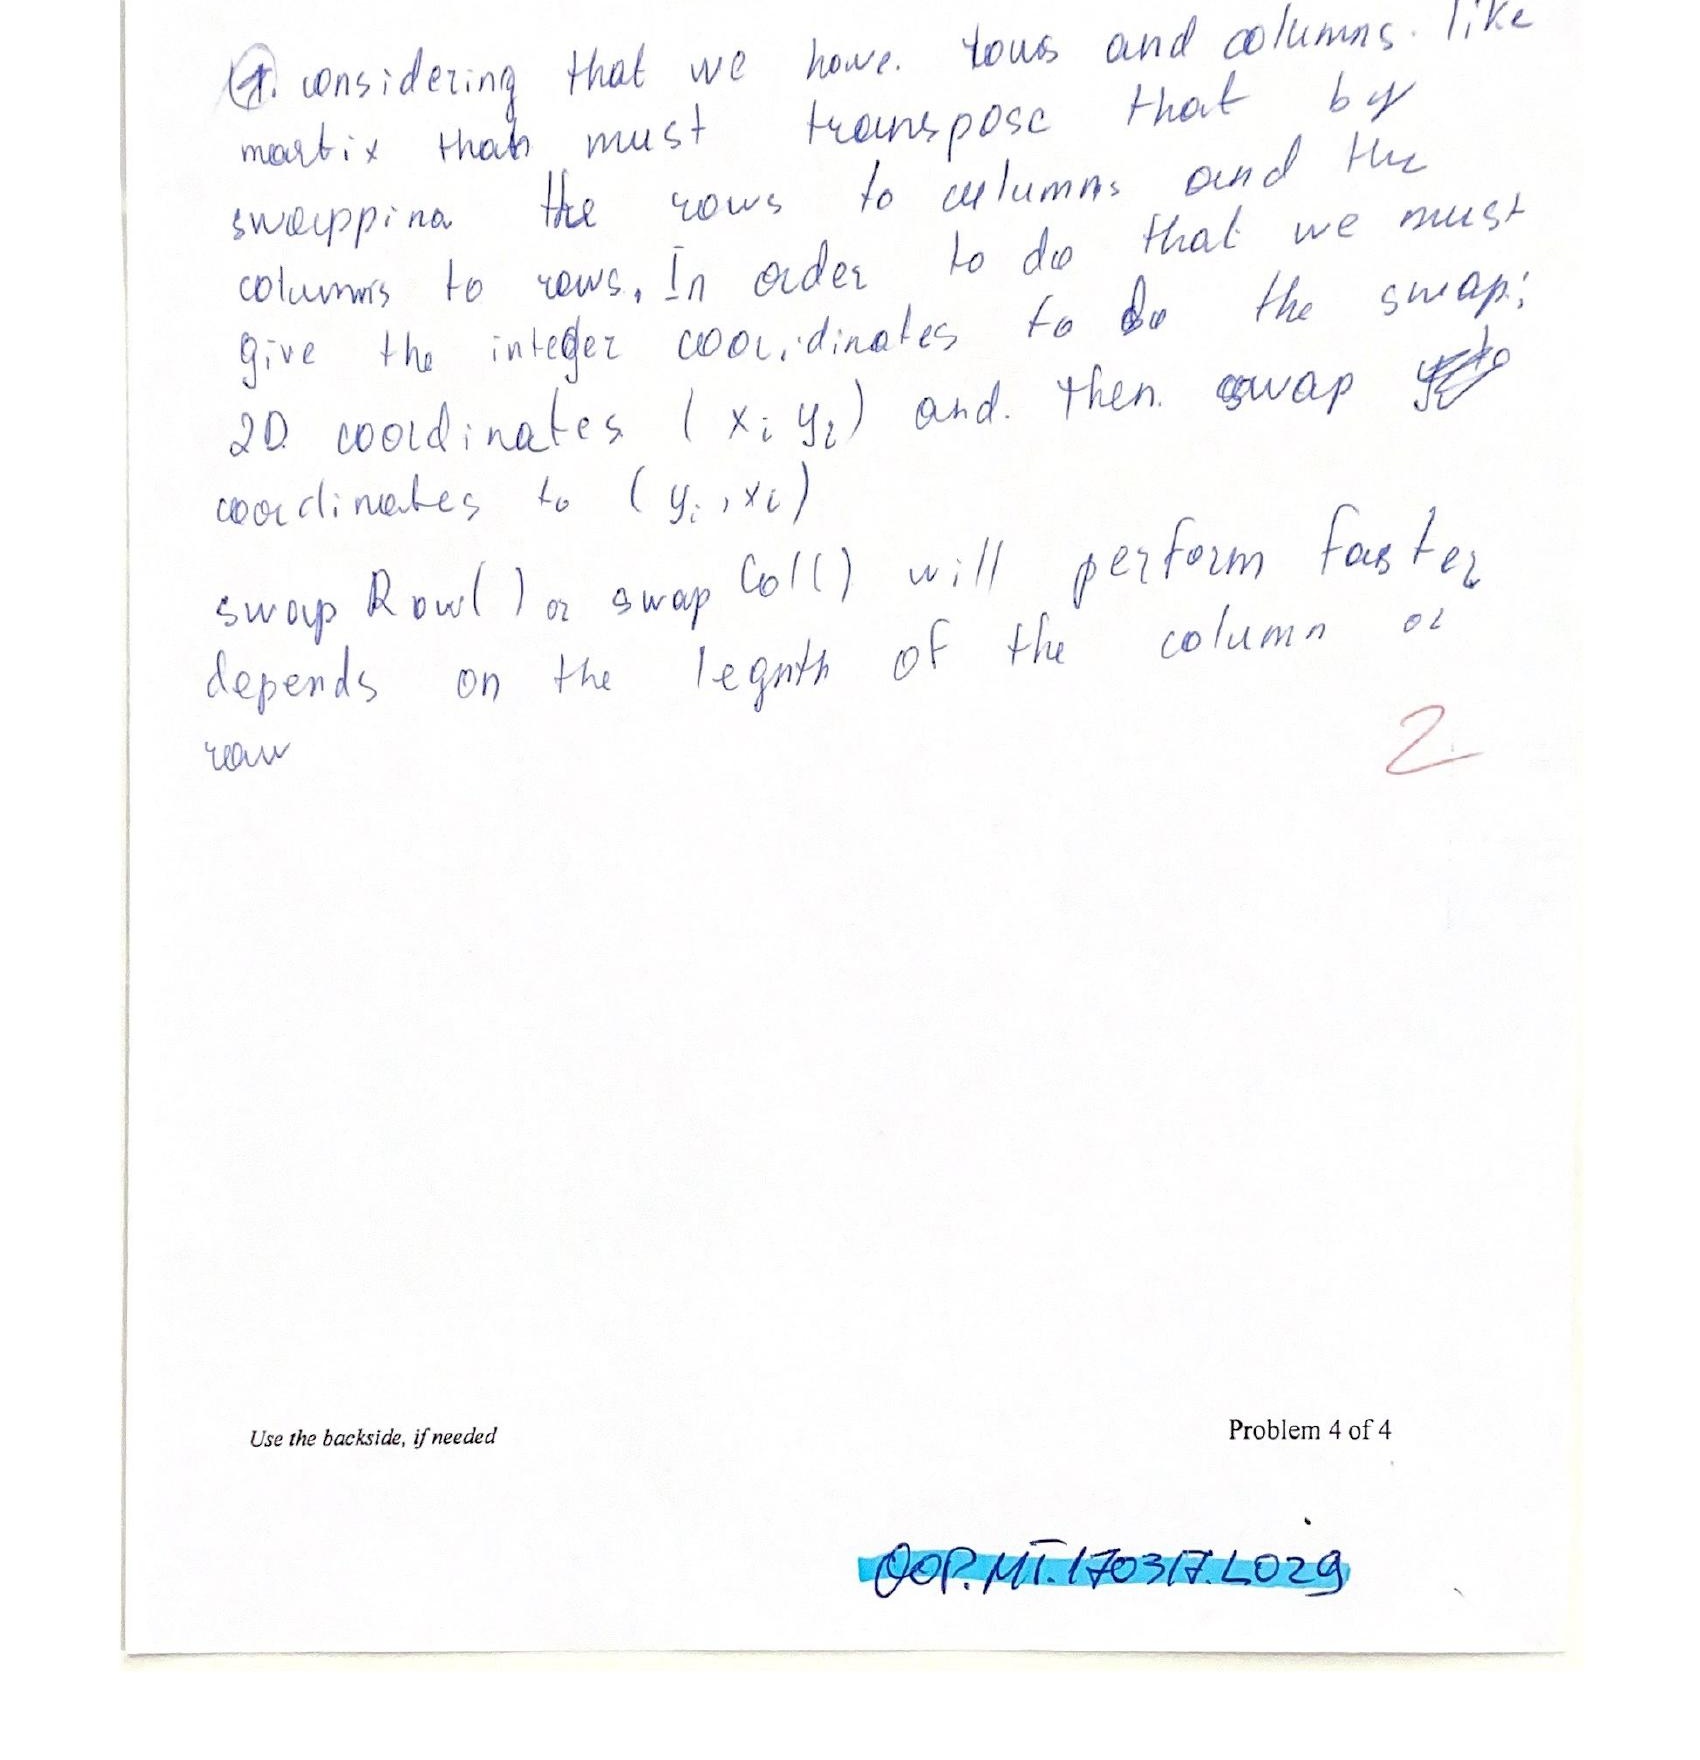 4. considering that we have. rows and columns. like
martix than must transpose that by
swapping the rows to columns and the
columns to rows. In order to do that we must
give the integer coordinates to do the swap;
2D. coordinates (xi yi) and. then. swap
coordinates to (yi, xi)
swap Row() or swap Col() will perform faster
depends on the legnth of the column or
row
2
Use the backside, if needed
Problem 4 of 4
OOP.MT.170317.L029